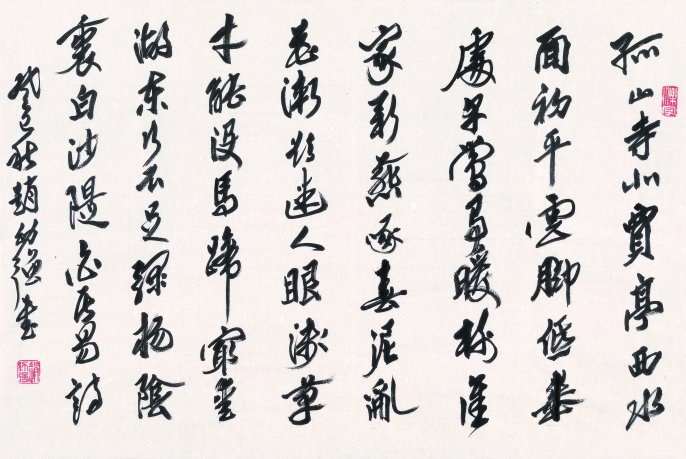 孤山寺北賈亭西水
面初平雲腳低幾
處早鶯爭暖樹誰
家新燕啄春泥亂
花漸欲迷人眼淺草
才能沒馬蹄最愛
湖東行不足綠楊陰
裏白沙隄白居易詩
癸巳秋趙幼強書